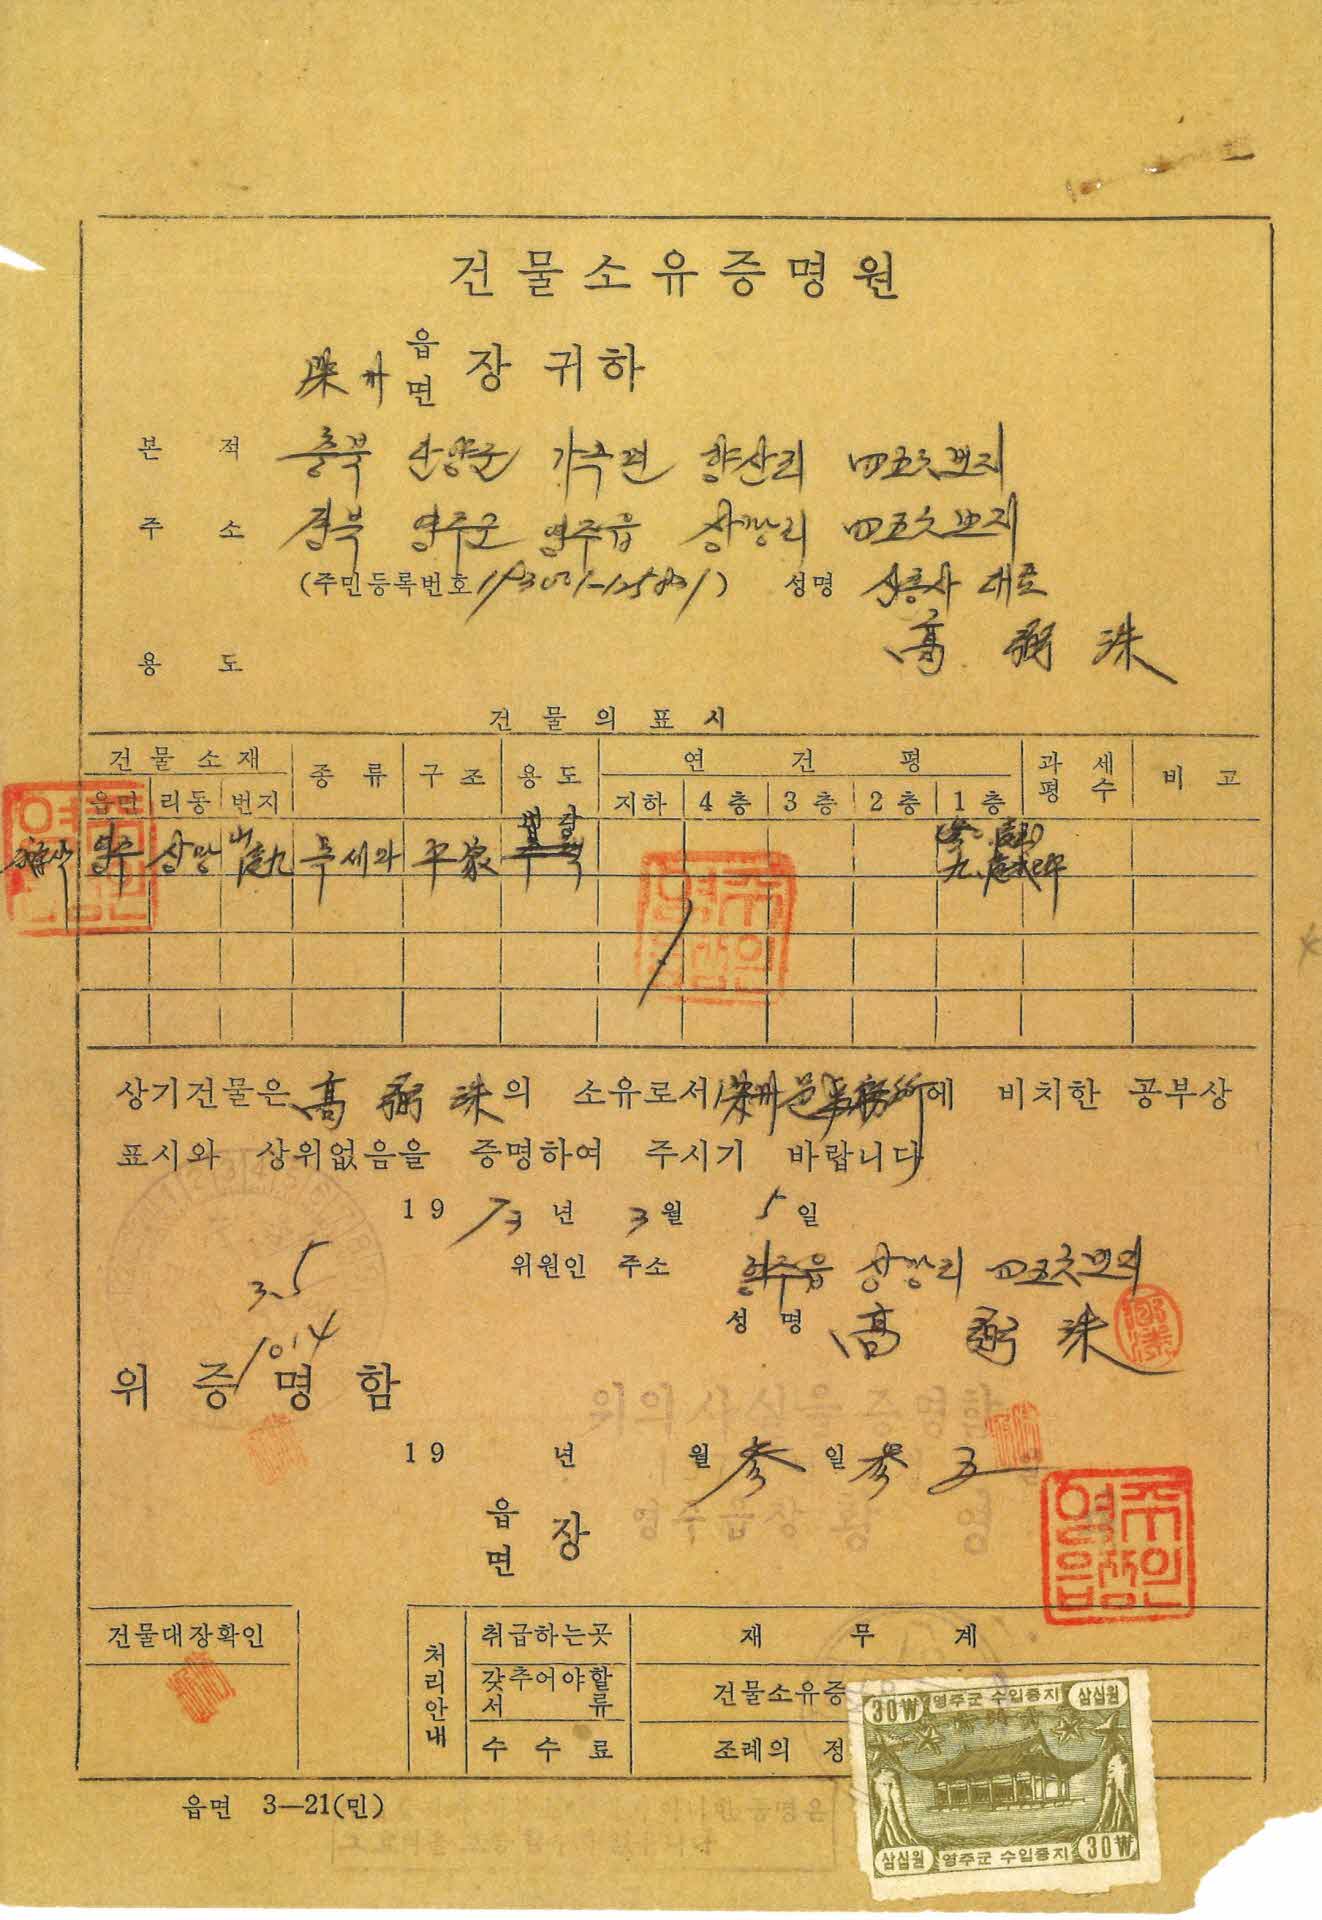 건물소유증명원
읍
면 장 귀하
본 적 충북 단양군 가곡면 향산리 四五六번지
주 소 경북 영주군 영주읍 상망리 四五六번지
(주민등록번호 ) 성명 대표
高 弼 洙
용 도
건 물 의 표 시
건 물 소 재 종 류 구 조 용 도 연 건 평 과 세 평 수 비 고
읍면 리동 번지 지하 4층 3층 2층 1층
영주 상망 平家
상기건물은 高 弼 洙의 소유로서 에 비치한 공부상
표시와 상위없음을 증명하여 주시기 바랍니다
1973년 3월 5일
위원인 주소 영주읍 상망리 四五六번지
성 명 高 弼 洙
3.5
1014
위 증 명 함
위의 사실을 증명함
19 년 월 참 일 參 五
읍
면 장
영주읍장 황 영
영주읍장인
건물대장확인
처리안내 취급하는곳 재 무 계
갖추어야할 서 류 건물소유증
수 수 료 조례의 정
30₩ 영주군 수입증지 삼십원
삼십원 영주군 수입증지 30₩
읍면 3—21(민)